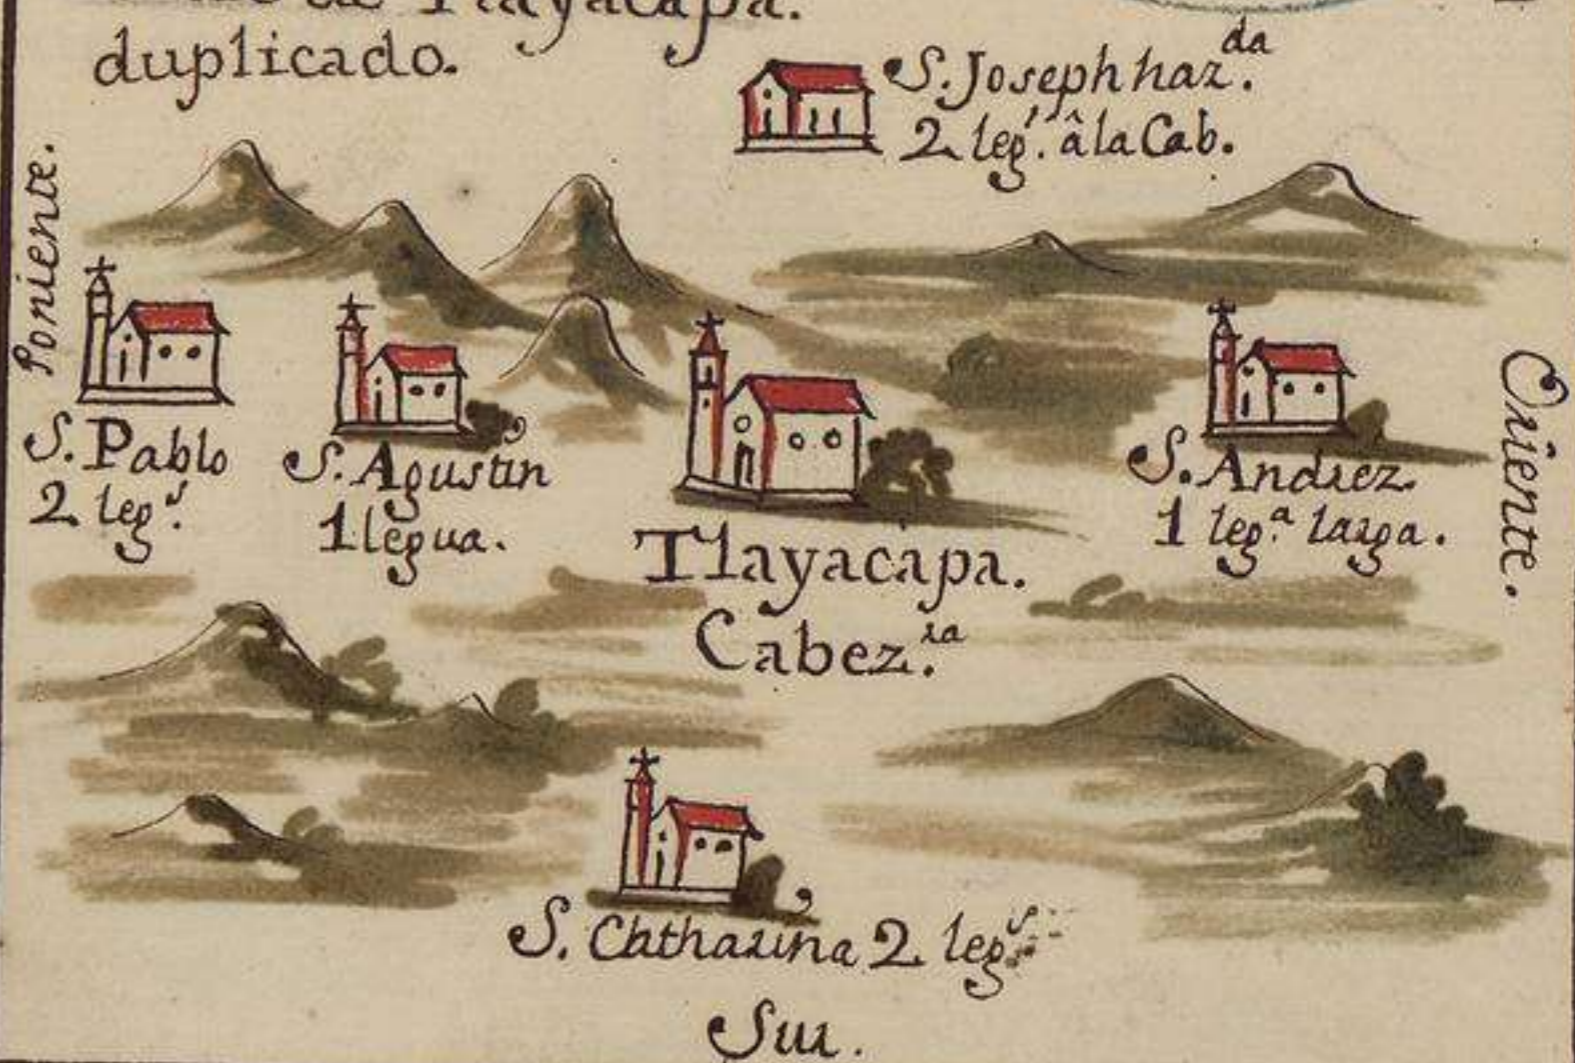 de Tlayacapa.
duplicado.
S. Joseph haz.da
2 leg.s â la Cab.
Poniente.
S. Pablo
2 leg.s
S. Agustin
1 legua.
Tlayacapa.
Cabez.ra
S. Andrez.
1 leg.a larga.
Oriente.
S. Chatharina 2 leg.s
Sur.